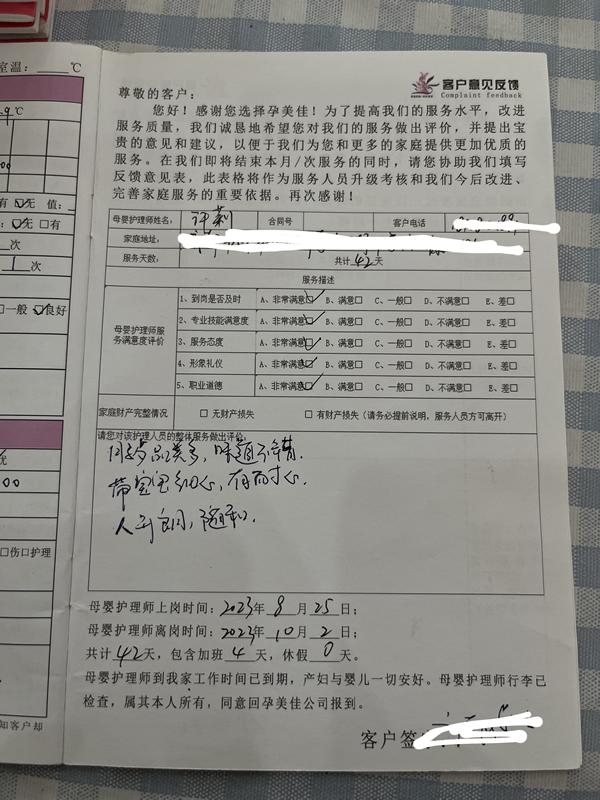 室温：____℃
客户意见反馈
Complaint feedback
尊敬的客户：
您好！感谢您选择孕美佳！为了提高我们的服务水平，改进
服务质量，我们诚恳地希望您对我们的服务做出评价，并提出宝
贵的意见和建议，以便于我们为您和更多的家庭提供更加优质的
服务。在我们即将结束本月/次服务的同时，请您协助我们填写
反馈意见表，此表格将作为服务人员升级考核和我们今后改进、
完善家庭服务的重要依据。再次感谢！
母婴护理师姓名： 许莉 合同号 客户电话
家庭地址：
服务天数： 共计42天
服务描述
母婴护理师服
务满意度评价
1、到岗是否及时 A、非常满意☑ B、满意□ C、一般□ D、不满意□ E、差□
2、专业技能满意度 A、非常满意☑ B、满意□ C、一般□ D、不满意□ E、差□
3、服务态度 A、非常满意☑ B、满意□ C、一般□ D、不满意□ E、差□
4、形象礼仪 A、非常满意☑ B、满意□ C、一般□ D、不满意□ E、差□
5、职业道德 A、非常满意☑ B、满意□ C、一般□ D、不满意□ E、差□
家庭财产完整情况 □ 无财产损失 □ 有财产损失（请务必提前说明，服务人员方可离开）
请您对该护理人员的整体服务做出评价
月子品类多，味道不错.
带宝宝细心，有耐心.
人于良，随和.
母婴护理师上岗时间：2023年8月25日；
母婴护理师离岗时间：2023年10月2日；
共计42天，包含加班4天，休假0天。
母婴护理师到我家工作时间已到期，产妇与婴儿一切安好。母婴护理师行李已
检查，属其本人所有，同意回孕美佳公司报到。
客户签
□无 □有
次
1 次
□一般 ☑良好
□伤口护理
知客户却